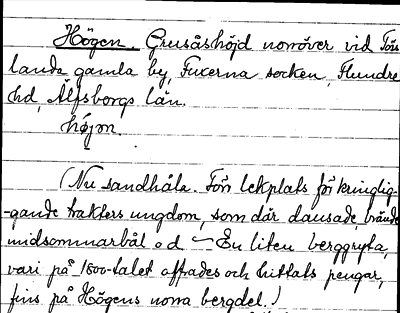 Högen. Grusåshöjd norröver vid Törs
landa gamla by, Fuxerna socken, Flundre
hd, Älfsborgs län.
högen.
(Nu sandhåla. Förr lekplats för kringlig-
-gande trakters ungdom, som där dansade, brände
midsommarbål o d — En liten berggryta,
vari på 1800-talet offrades och hittats pengar,
fins på Högens norra bergdel.)